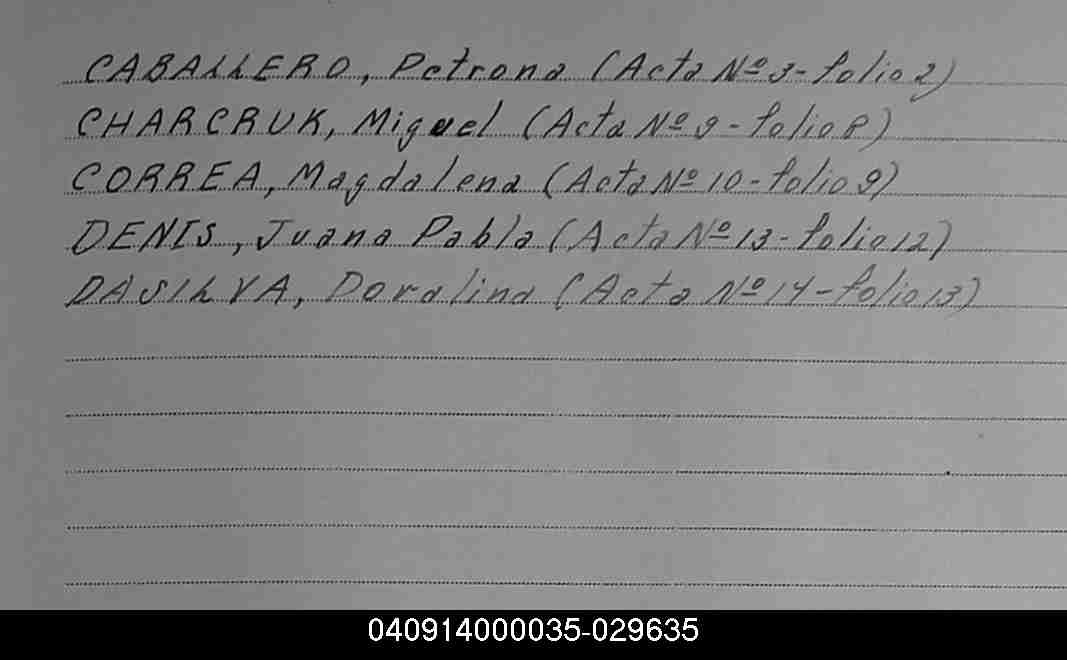 CABALLERO, Petrona (Acta Nº 3 - folio 2)
CHARCRUK, Miguel (Acta Nº 9 - folio 8)
CORREA, Magdalena (Acta Nº 10 - folio 9)
DENIS, Juana Pabla (Acta Nº 13 - folio 12)
DASILVA, Doralina (Acta Nº 14 - folio 13)
040914000035-029635